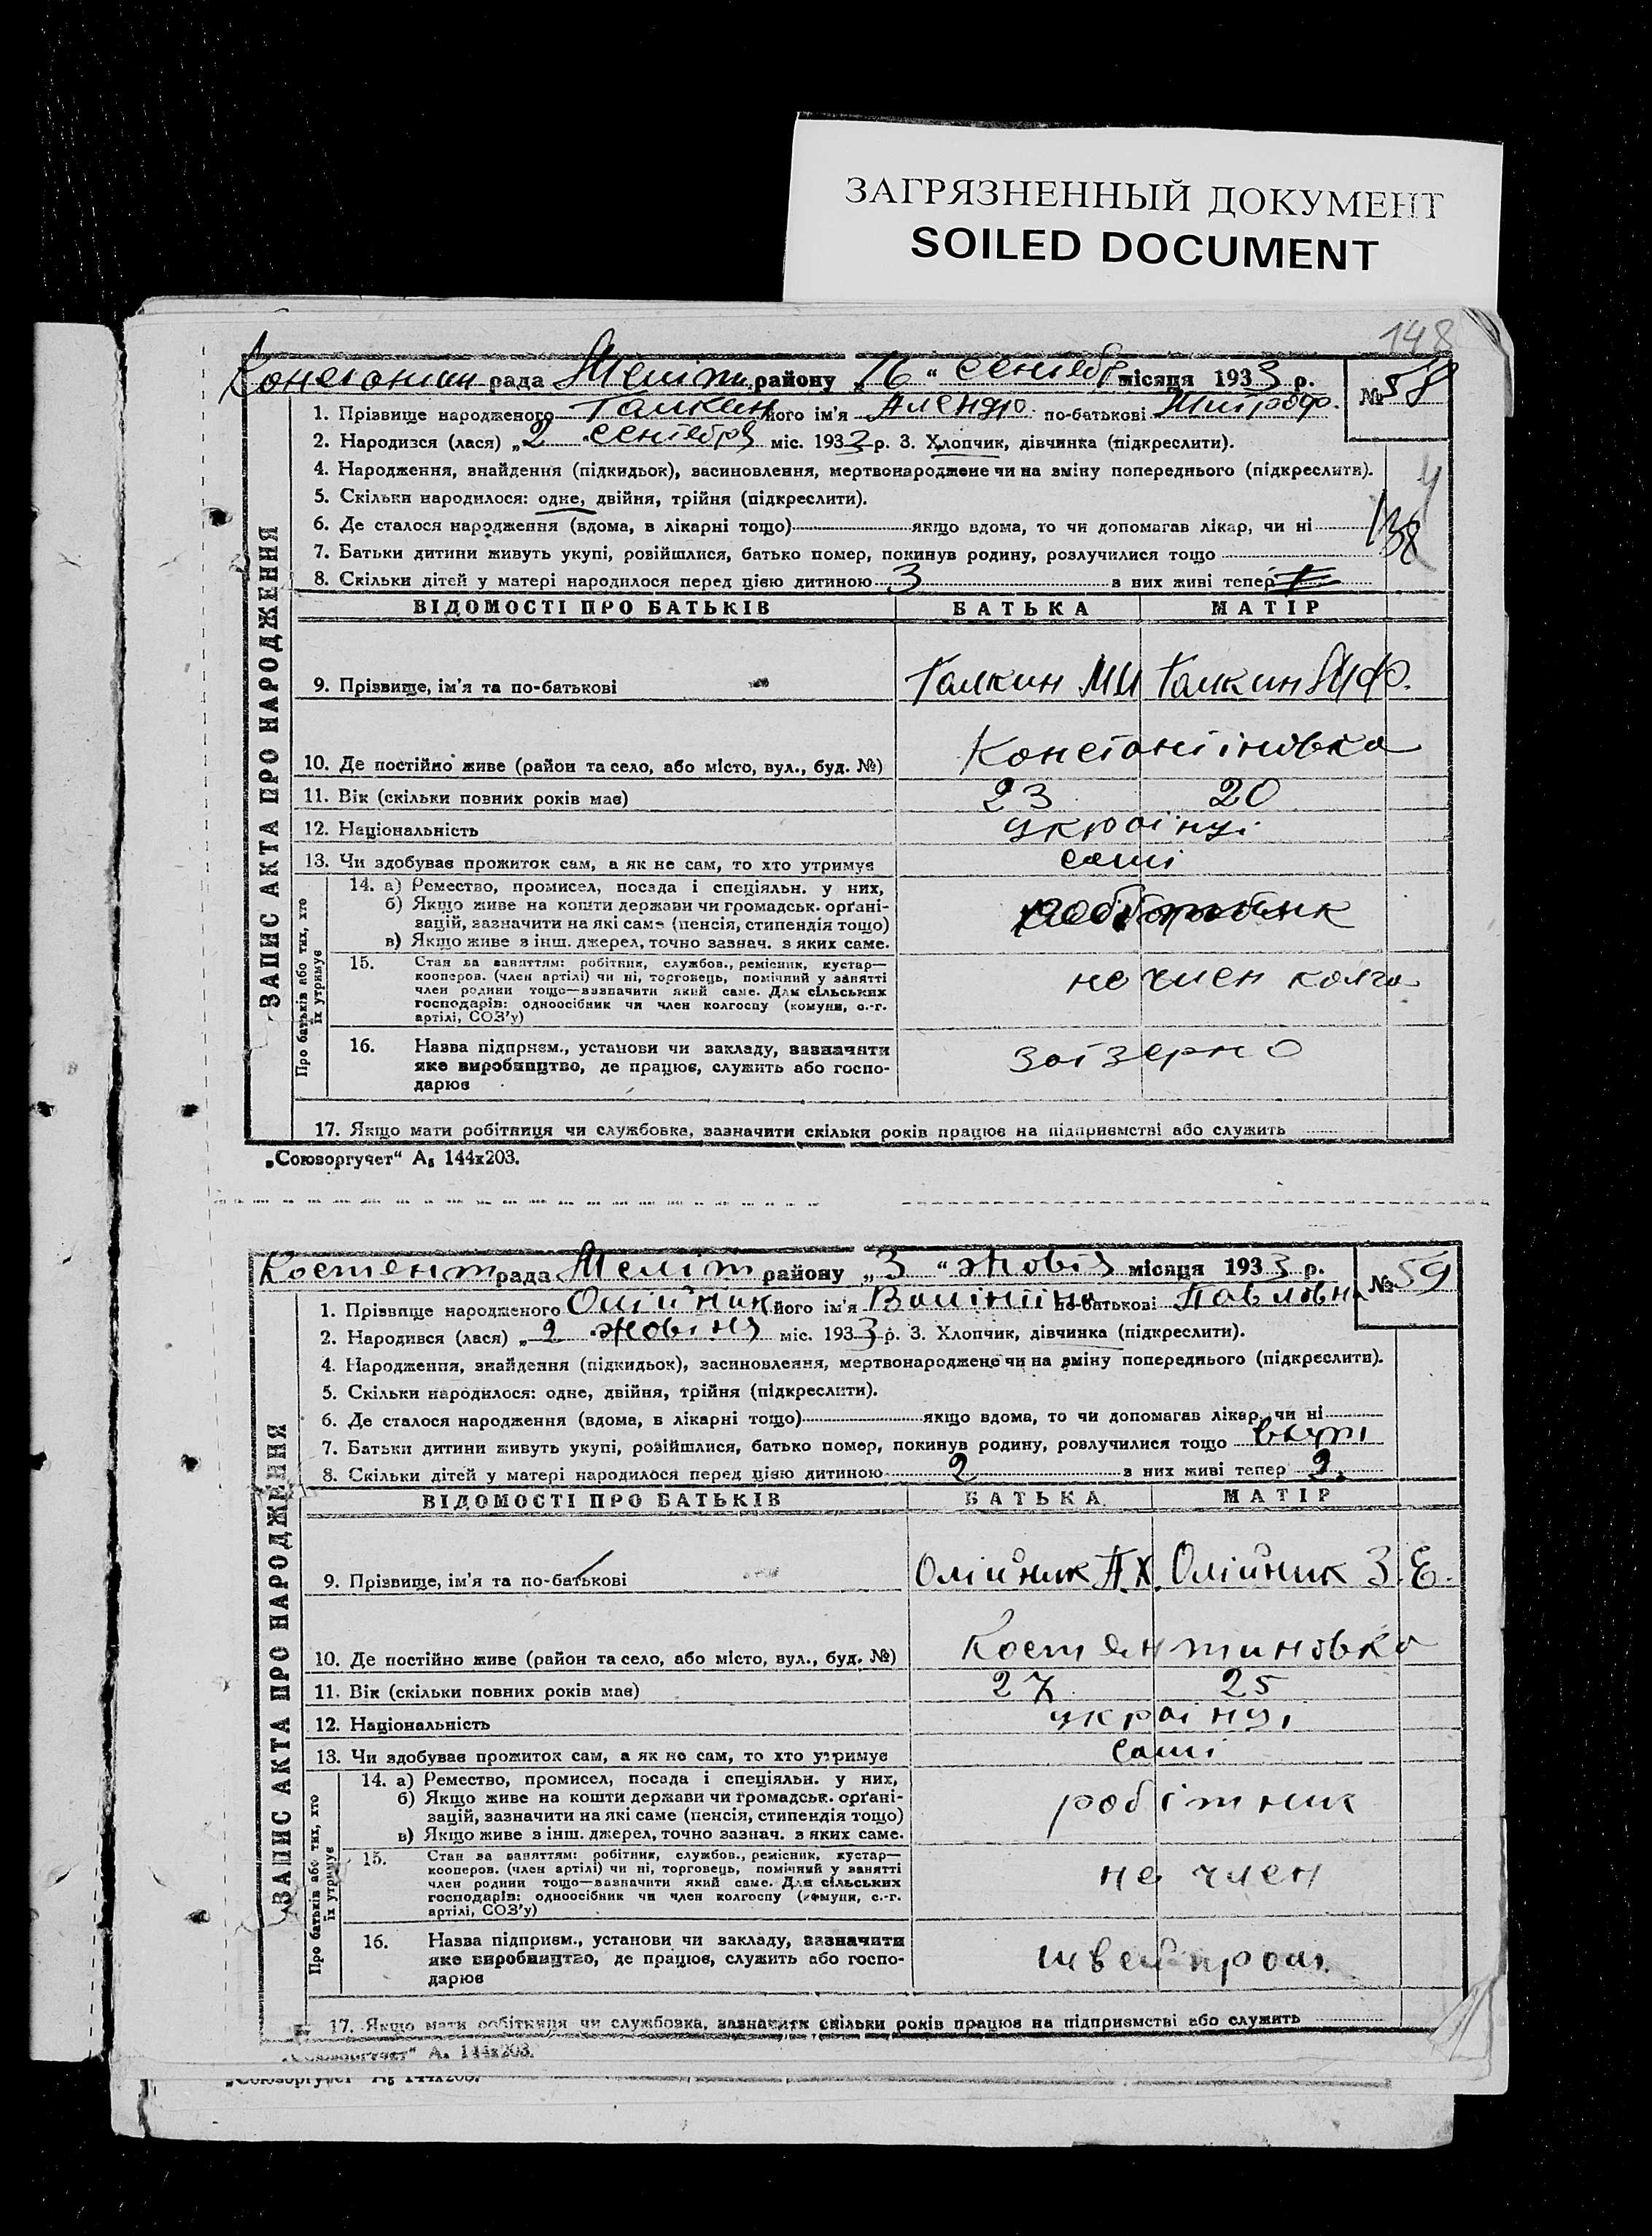 ЗАГРЯЗНЕННЫЙ ДОКУМЕНТ
SOILED DOCUMENT
148
рада Меліт. району „16“ сентебр місяця 1933 р.
№ 58
1. Прізвище народженого Галкин його ім'я по-батькові Митроф.
2. Народився (лася) „2 сентебря міс. 1933 р. 3. Хлопчик, дівчинка (підкреслити).
4. Народження, знайдення (підкидьок), васиновлення, мертвонароджене чи на зміну попереднього (підкреслити).
5. Скільки народилося: одне, двійня, трійня (підкреслити).
6. Де сталося народження (вдома, в лікарні тощо) якщо вдома, то чи допомагав лікар, чи ні
7. Батьки дитини живуть укупі, розійшлися, батько помер, покинув родину, розлучилися тощо
138
8. Скільки дітей у матері народилося перед цією дитиною 3 з них живі тепер
ЗАПИС АКТА ПРО НАРОДЖЕННЯ
ВІДОМОСТІ ПРО БАТЬКІВ БАТЬКА МАТІР
9. Прізвище, ім'я та по-батькові Галкин МИ Галкин
10. Де постійно живе (район та село, або місто, вул., буд. №) Констонтіновка
11. Вік (скільки повних років має) 23 20
12. Національність українці
13. Чи здобував прожиток сам, а як не сам, то хто утримує самі
Про батьків або тих, хто їх утримує
14. а) Ремество, промисел, посада і спеціяльн. у них,
б) Якщо живе на кошти держави чи громадськ. орґані-
зацій, зазначити на які саме (пенсія, стипендія тощо)
в) Якщо живе з інш. джерел, точно зазнач. з яких саме.
15. Стан за заняттям: робітник, службов., ремісник, кустар—
кооперов. (член артілі) чи ні, торговець, помічний у занятті
член родини тощо—зазначити який саме. Для сільських
господарів: одноосібник чи член колгоспу (комуни, с.-г.
артілі, СОЗ'у)
не член колго
16. Назва підприєм., установи чи закладу, зазначити
яке виробництво, де працює, служить або госпо-
дарює
заізерно
17. Якщо мати робітниця чи службовка, зазначити скільки років працює на підприємстві або служить
„Союзоргучет“ А5 144х203.
Костент рада Меліт району „3“ жовтя місяця 1933 р.
№ 59
1. Прізвище народженого Олійник його ім'я Валінтіна по-батькові Павловна
2. Народився (лася) „2 жовтня міс. 1933 р. 3. Хлопчик, дівчинка (підкреслити).
4. Народження, знайдення (підкидьок), засиновлення, мертвонароджене чи на зміну попереднього (підкреслити).
5. Скільки народилося: одне, двійня, трійня (підкреслити).
6. Де сталося народження (вдома, в лікарні тощо) якщо вдома, то чи допомагав лікар, чи ні
7. Батьки дитини живуть укупі, розійшлися, батько помер, покинув родину, розлучилися тощо вкупі
8. Скільки дітей у матері народилося перед цією дитиною 2 з них живі тепер 2.
ЗАПИС АКТА ПРО НАРОДЖЕННЯ
ВІДОМОСТІ ПРО БАТЬКІВ БАТЬКА МАТІР
9. Прізвище, ім'я та по-батькові Олійник П.Х. Олійник З.Е.
10. Де постійно живе (район та село, або місто, вул., буд. №) Костянтиновка
11. Вік (скільки повних років має) 27 25
12. Національність українці
13. Чи здобував прожиток сам, а як не сам, то хто утримує самі
Про батьків або тих, хто їх утримує
14. а) Ремество, промисел, посада і спеціяльн. у них,
б) Якщо живе на кошти держави чи громадськ. орґані-
зацій, зазначити на які саме (пенсія, стипендія тощо)
в) Якщо живе з інш. джерел, точно зазнач. з яких саме.
робітник
15. Стан за заняттям: робітник, службов., ремісник, кустар—
кооперов. (член артілі) чи ні, торговець, помічний у занятті
член родини тощо—зазначити який саме. Для сільських
господарів: одноосібник чи член колгоспу (комуни, с.-г.
артілі, СОЗ'у)
не член
16. Назва підприєм., установи чи закладу, зазначити
яке виробництво, де працює, служить або госпо-
дарює
швейпром.
17. Якщо мати робітниця чи службовка, зазначити скільки років працює на підприємстві або служить
„Союзоргучет“ А5 144х203.
„Союзоргучет“ А5 144х203.